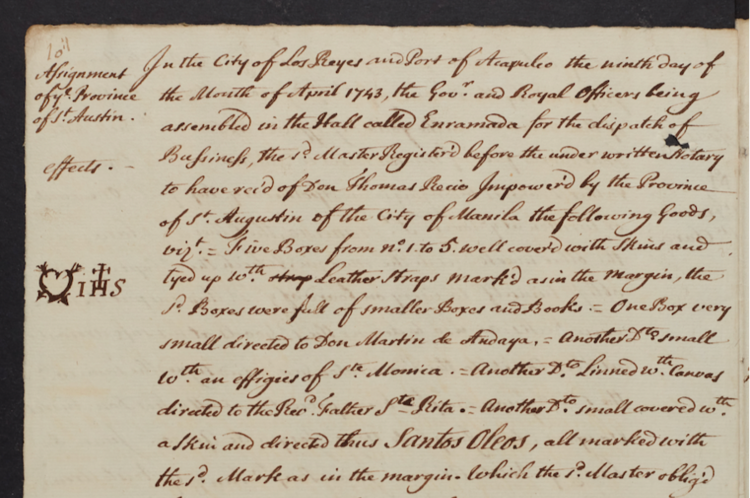 Assignment
of ye. Province
of St. Austin.
effects. -
IHS
In the City of Los Reyes and Port of Acapulco the ninth day of
the Month of April 1743, the Govr. and Royal Officers being
assembled in the Hall called Enramada for the dispatch of
Bussiness, the sd. Master Register'd before the under written Notary
to have rec'd of Don Thomas Recio Impower'd by the Province
of St. Augustin of the City of Manila the following Goods,
vizt. = Five Boxes from no. 1. to 5. well cover'd with Skins and
tyed up wth. strap Leather straps mark'd as in the margin, the
sd. Boxes were full of smaller Boxes and Books. = One Box very
small directed to Don Martin de Andaya. = Another Dto. small
wth. an effigies of Sta. Monica. = Another Dto. Linned wth. Canvas
directed to the Revd. Father Sta. Rita. = Another Dto. small covered wth.
a skin and directed thus Santos Oleos, all marked with
the sd. Mark as in the margin. Which the sd. Master oblig'd